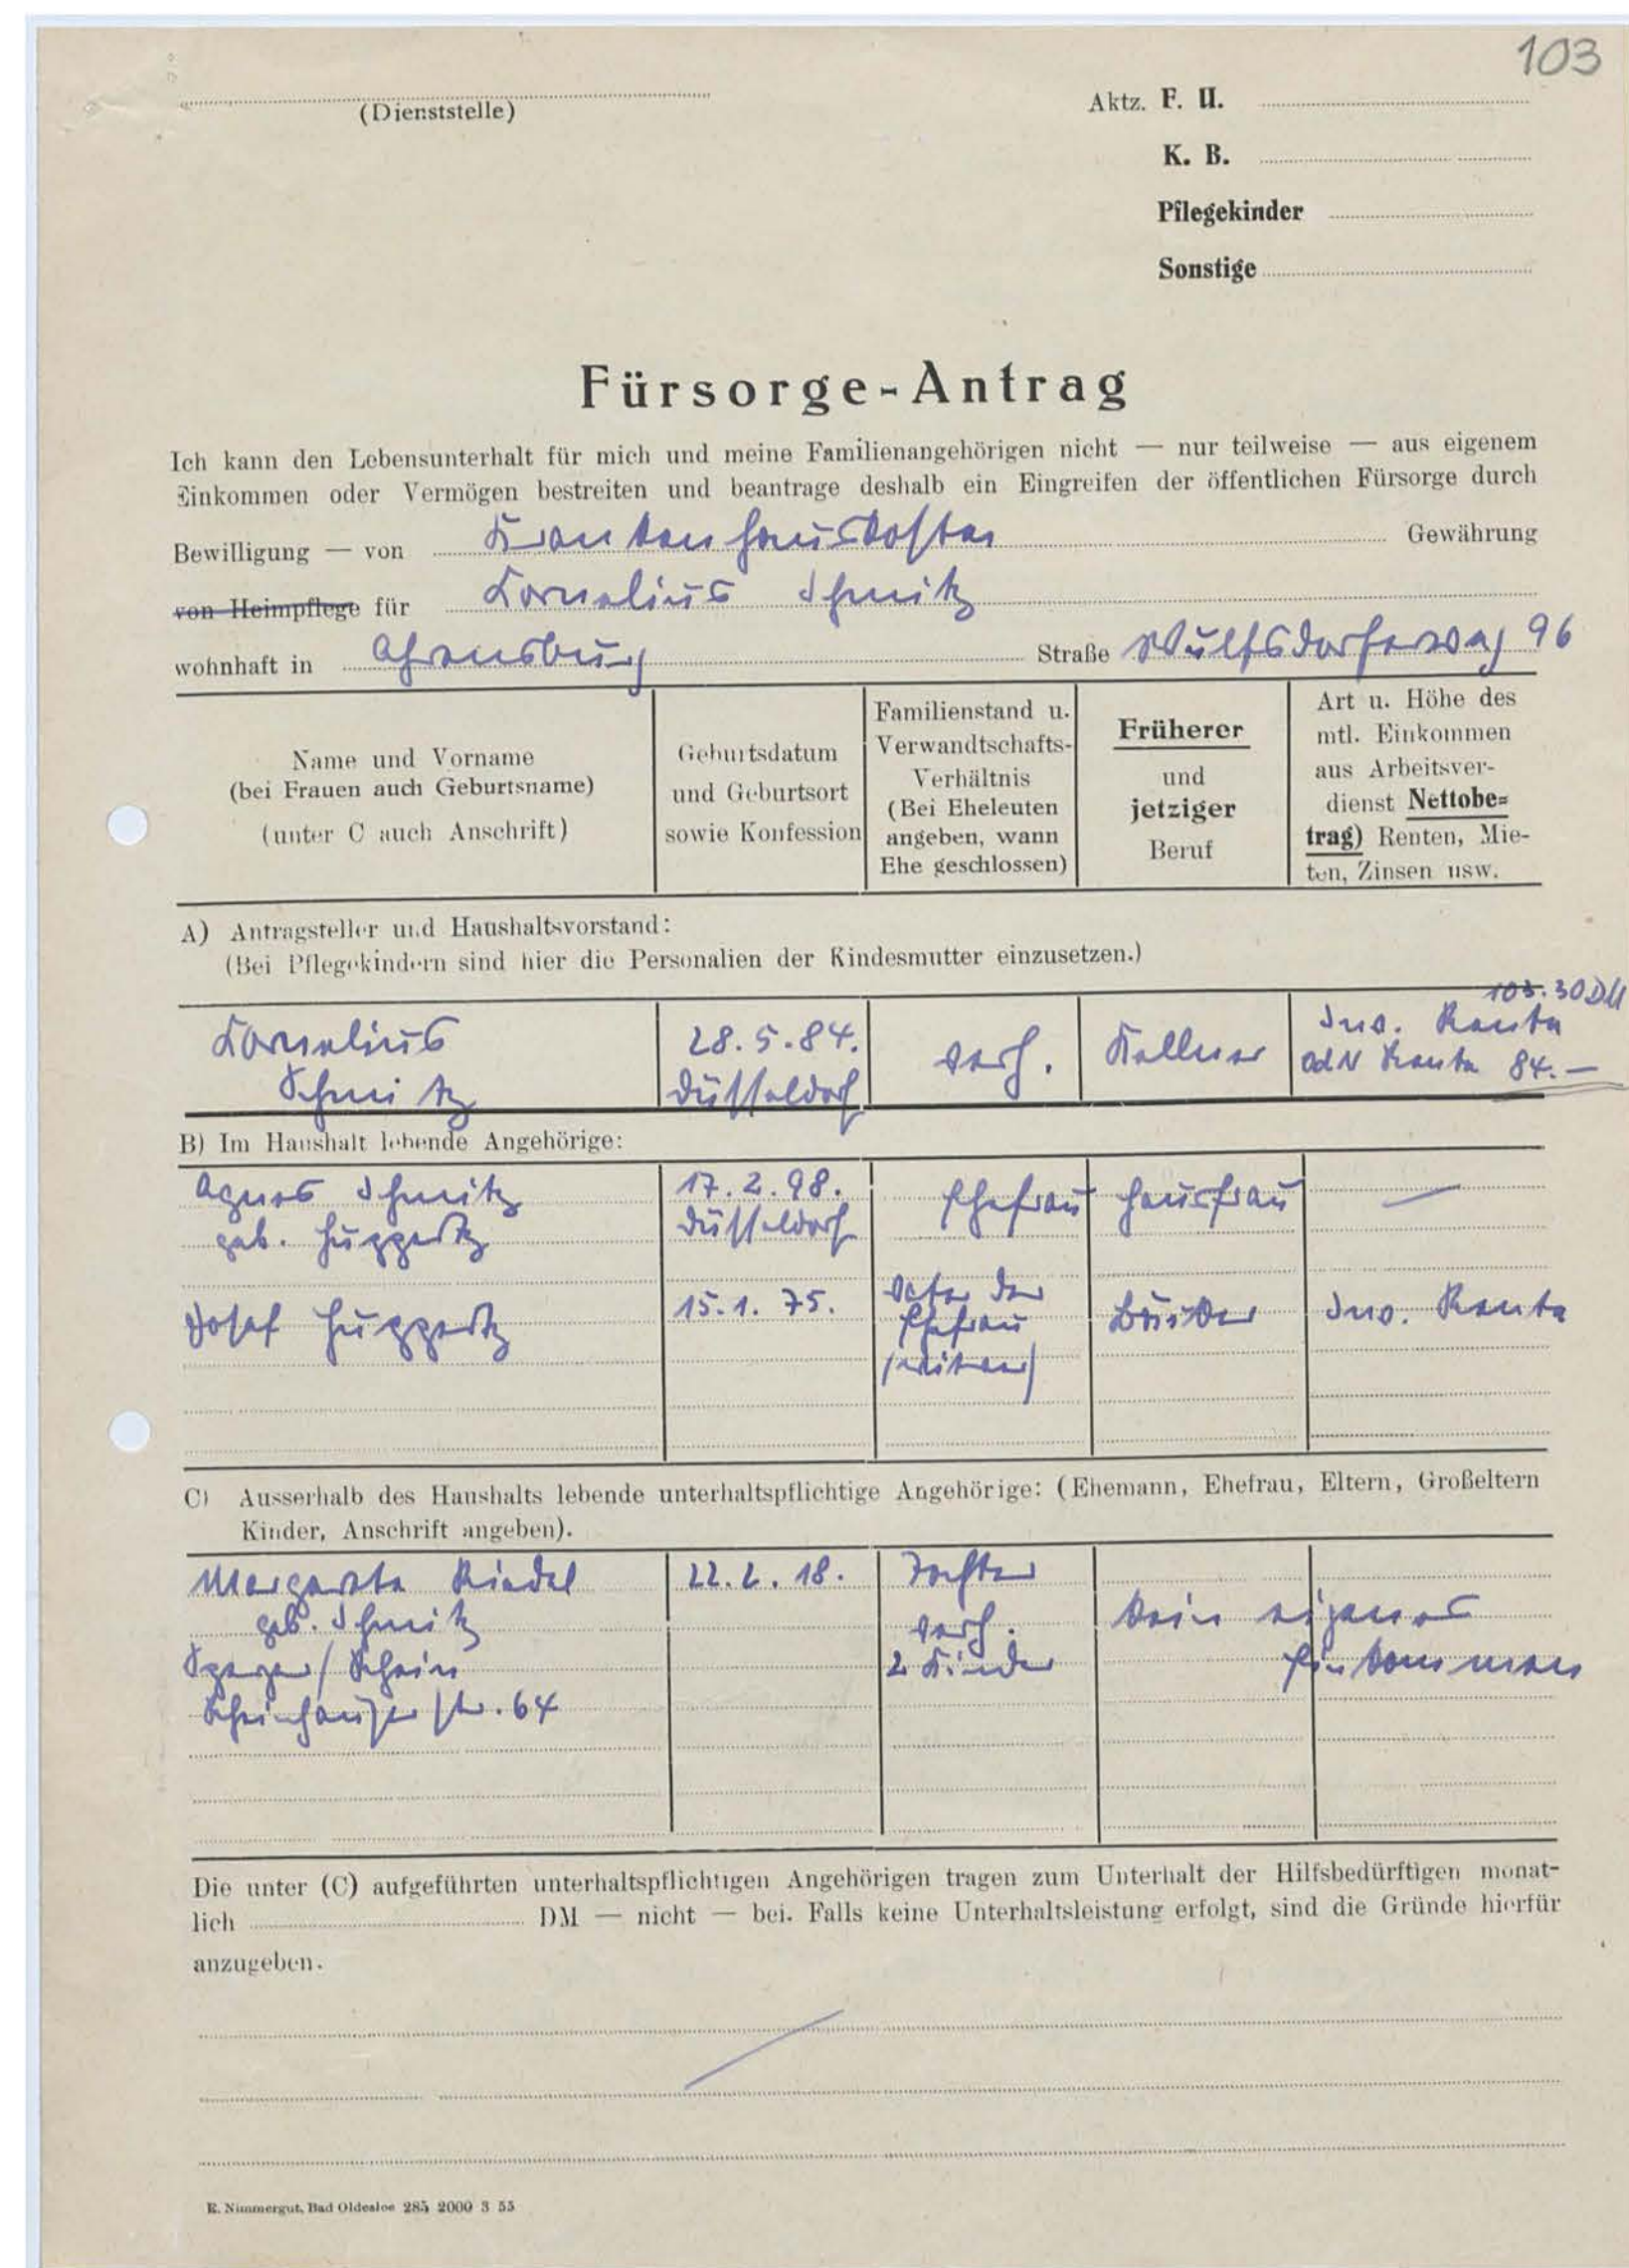 103
(Dienststelle)
Aktz. F. U.
K. B.
Pflegekinder
Sonstige
Fürsorge-Antrag
Ich kann den Lebensunterhalt für mich und meine Familienangehörigen nicht — nur teilweise — aus eigenem
Einkommen oder Vermögen bestreiten und beantrage deshalb ein Eingreifen der öffentlichen Fürsorge durch
Bewilligung — von Krankenhauskosten Gewährung
von Heimpflege für Kornelius Schmitz
wohnhaft in Ahrensburg Straße Wulfsdorferweg 96
Name und Vorname
(bei Frauen auch Geburtsname)
(unter C auch Anschrift)
Geburtsdatum
und Geburtsort
sowie Konfession
Familienstand u.
Verwandtschafts-
Verhältnis
(Bei Eheleuten
angeben, wann
Ehe geschlossen)
Früherer
und
jetziger
Beruf
Art u. Höhe des
mtl. Einkommen
aus Arbeitsver-
dienst Nettobe=
trag) Renten, Mie-
ten, Zinsen usw.
A) Antragsteller und Haushaltsvorstand:
(Bei Pflegekindern sind hier die Personalien der Kindesmutter einzusetzen.)
Kornelius
Schmitz
28.5.84.
Düsseldorf
verh.
Kellner
103.30 DM
Inv. Rente
OdN Rente 84.—
B) Im Haushalt lebende Angehörige:
Agnes Schmitz
geb. Huppertz
17.2.98.
Düsseldorf
Ehefrau
Hausfrau
—
Josef Huppertz
15.1.75.
Vater der
Ehefrau
(Witwer)
Inv. Rente
C) Ausserhalb des Haushalts lebende unterhaltspflichtige Angehörige: (Ehemann, Ehefrau, Eltern, Großeltern
Kinder, Anschrift angeben).
Margarete Riedel
geb. Schmitz
/ Rhein
str. 64
22.2.18.
Tochter
verh.
2 Kinder
kein eigenes
Einkommen
Die unter (C) aufgeführten unterhaltspflichtigen Angehörigen tragen zum Unterhalt der Hilfsbedürftigen monat-
lich DM — nicht — bei. Falls keine Unterhaltsleistung erfolgt, sind die Gründe hierfür
anzugeben.
E. Nimmergut, Bad Oldesloe 285 2000 3 55